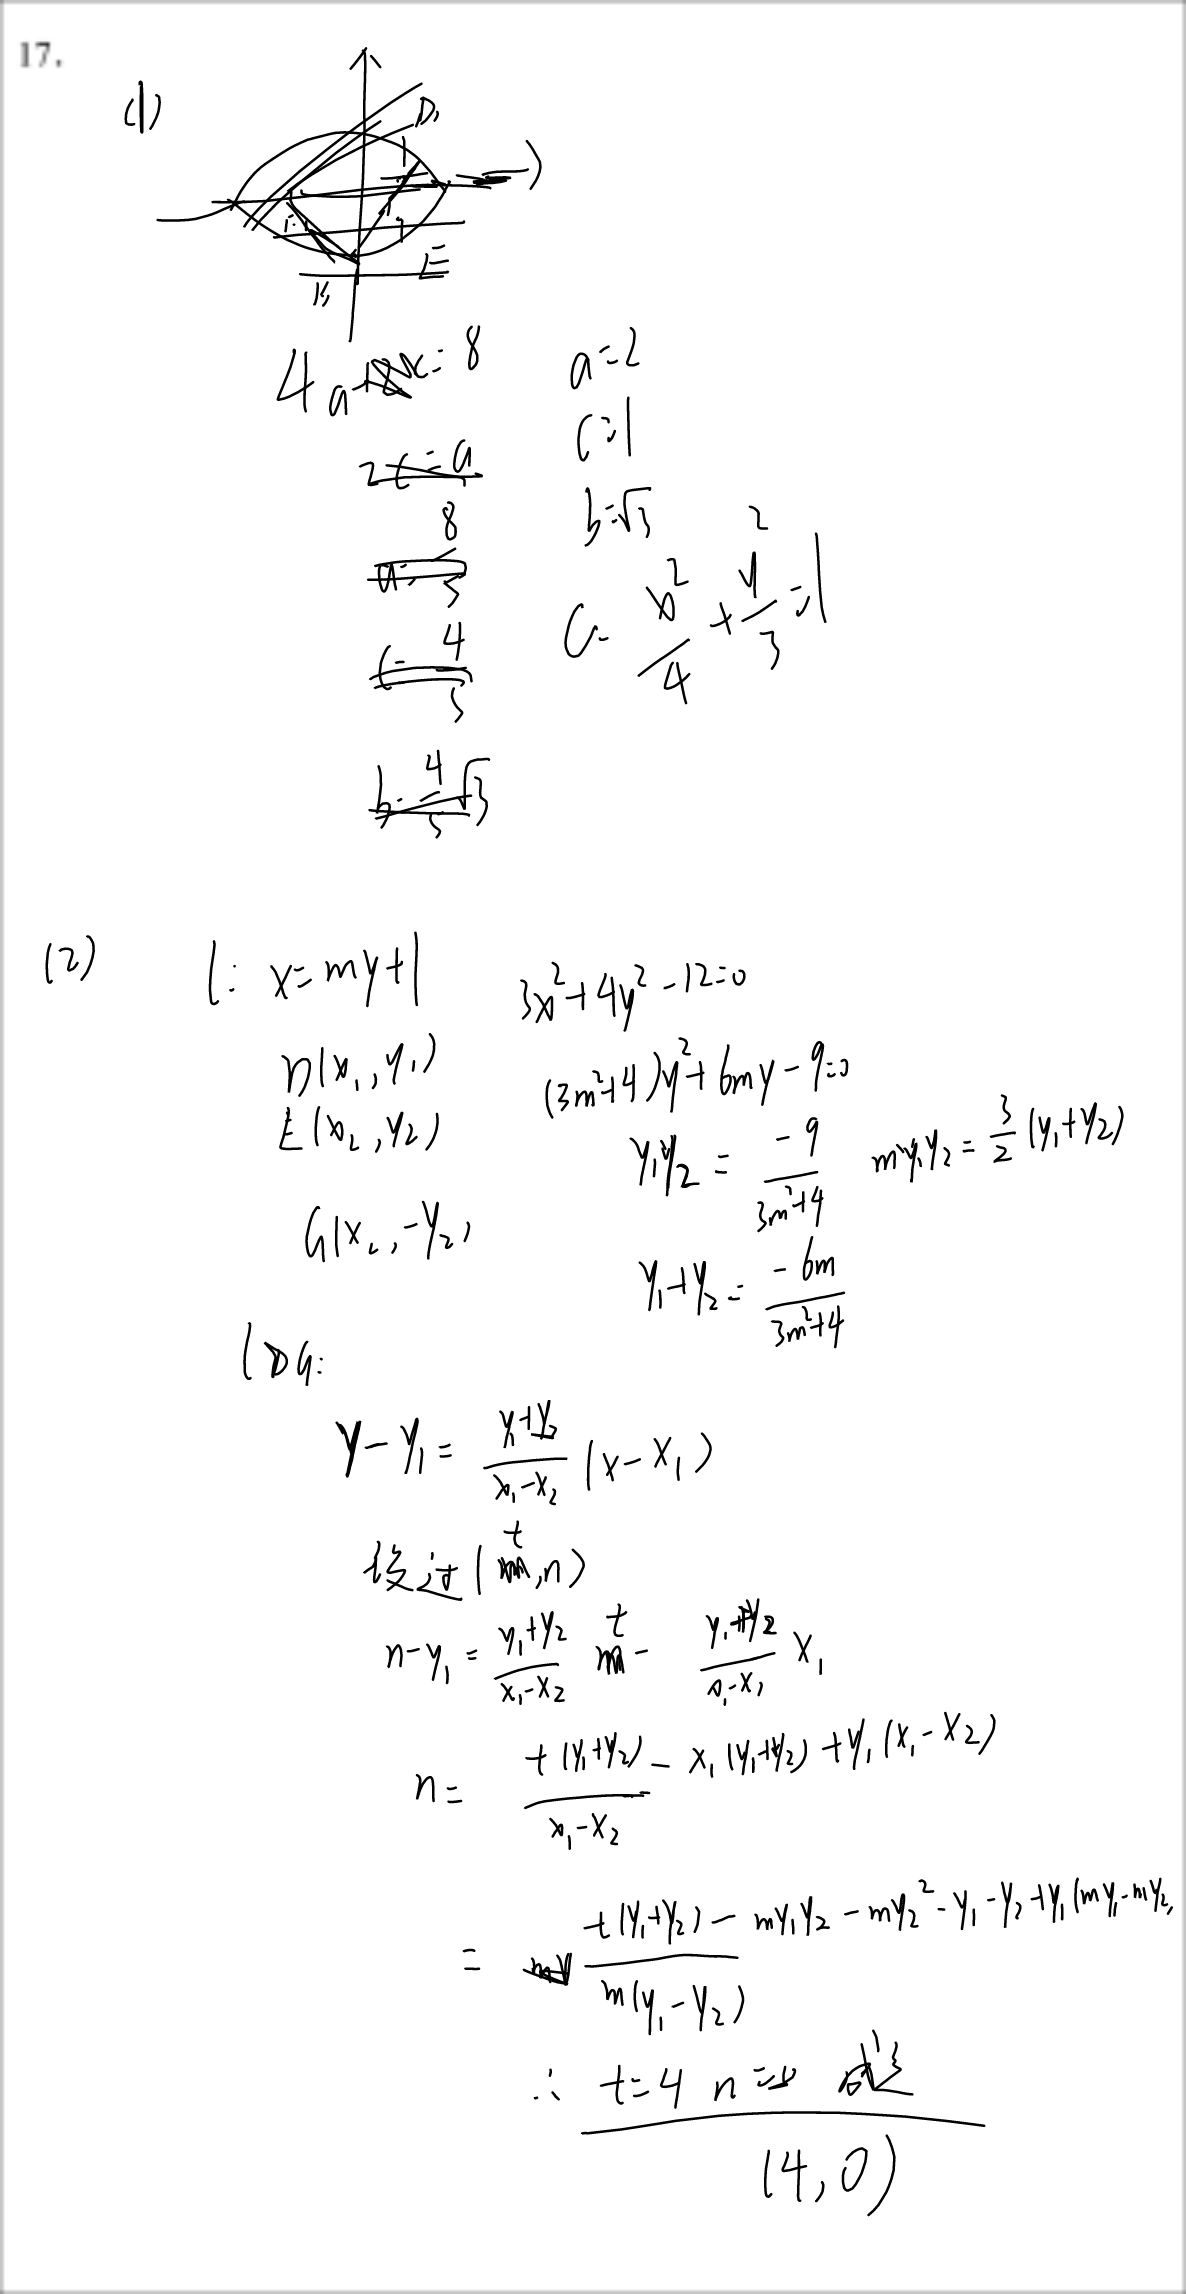 17.
(1)
D
E
B
4a+2c=8
2c=a
a=8/5
c=4/5
b=4/5√3
a=2
c=1
b=√3
C: x²/4+y²/3=1
(2) l: x=my+1
3x²+4y²-12=0
D(x₁,y₁)
(3m²+4)y²+6my-9=0
E(x₂,y₂)
y₁y₂=-9/(3m²+4) my₁y₂=3/2(y₁+y₂)
G(x₂,-y₂)
y₁+y₂=-6m/(3m²+4)
l DG:
y-y₁=(y₁+y₂)/(x₁-x₂)(x-x₁)
设过(t,n)
n-y₁=(y₁+y₂)/(x₁-x₂) t-(y₁+y₂)/(x₁-x₂) x₁
n=(t(y₁+y₂)-x₁(y₁+y₂)+y₁(x₁-x₂))/(x₁-x₂)
=(t(y₁+y₂)-my₁y₂-my₂²-y₁-y₂+y₁(my₁-my₂))/(m(y₁-y₂))
∴ t=4 n=0 成立
(4,0)